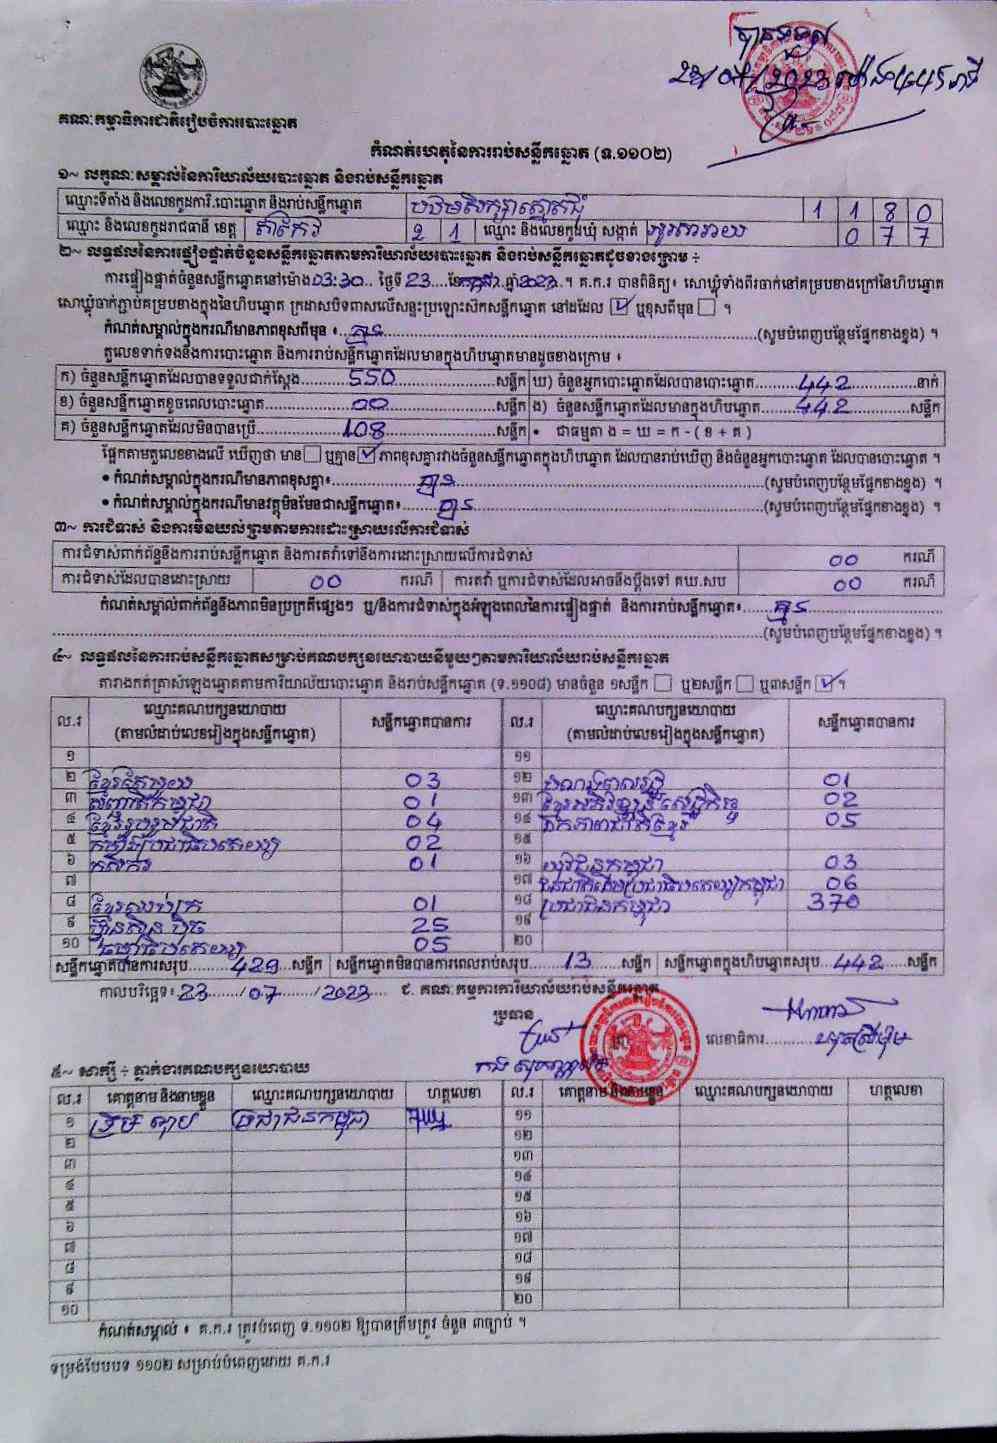 បានទទួល
គណៈកម្មាធិការជាតិរៀបចំការបោះឆ្នោត
កំណត់ហេតុនៃការរាប់សន្លឹកឆ្នោត (ទ.១១០២)
១~ លក្ខណៈសម្គាល់នៃការិយាល័យបោះឆ្នោត និងរាប់សន្លឹកឆ្នោត
ឈ្មោះទីតាំង និងលេខកូដការិ.បោះឆ្នោត និងរាប់សន្លឹកឆ្នោត 1 1 8 0
ឈ្មោះ និងលេខកូដរាជធានី ខេត្ត តាកែវ 2 1 ឈ្មោះ និងលេខកូដឃុំ សង្កាត់ 0 7 7
២~ លទ្ធផលនៃការផ្ទៀងផ្ទាត់ចំនួនសន្លឹកឆ្នោតតាមការិយាល័យបោះឆ្នោត និងរាប់សន្លឹកឆ្នោតដូចខាងក្រោម ÷
ការផ្ទៀងផ្ទាត់ចំនួនសន្លឹកឆ្នោតនៅម៉ោង 03:30 ថ្ងៃទី 23 ខែ កក្កដា ឆ្នាំ 2023 ។ គ.ក.រ បានពិនិត្យ៖ សោឃ្លុំទាំងពីរចាក់នៅគម្របខាងក្រៅនៃហិបឆ្នោត
សោឃ្លុំចាក់ភ្ជាប់គម្របខាងក្នុងនៃហិបឆ្នោត ក្រដាសបិទពាសលើសន្ទះប្រឡោះសិកសន្លឹកឆ្នោត នៅដដែល ☑ ឬខុសពីមុន ☐ ។
កំណត់សម្គាល់ក្នុងករណីមានភាពខុសពីមុន ៖ គ្មាន (សូមបំពេញបន្ថែមផ្នែកខាងខ្នង) ។
តួលេខទាក់ទងនឹងការបោះឆ្នោត និងការរាប់សន្លឹកឆ្នោតដែលមានក្នុងហិបឆ្នោតមានដូចខាងក្រោម ៖
ក) ចំនួនសន្លឹកឆ្នោតដែលបានទទួលជាក់ស្តែង 550 សន្លឹក ឃ) ចំនួនអ្នកបោះឆ្នោតដែលបានបោះឆ្នោត 442 នាក់
ខ) ចំនួនសន្លឹកឆ្នោតខូចពេលបោះឆ្នោត 00 សន្លឹក ង) ចំនួនសន្លឹកឆ្នោតដែលមានក្នុងហិបឆ្នោត 442 សន្លឹក
គ) ចំនួនសន្លឹកឆ្នោតដែលមិនបានប្រើ 108 សន្លឹក • ជាធម្មតា ង = ឃ = ក - ( ខ + គ )
ផ្អែកតាមតួលេខខាងលើ ឃើញថា មាន ☐ ឬគ្មាន ☑ ភាពខុសគ្នារវាងចំនួនសន្លឹកឆ្នោតក្នុងហិបឆ្នោត ដែលបានរាប់ឃើញ និងចំនួនអ្នកបោះឆ្នោត ដែលបានបោះឆ្នោត ។
• កំណត់សម្គាល់ក្នុងករណីមានភាពខុសគ្នា៖ គ្មាន (សូមបំពេញបន្ថែមផ្នែកខាងខ្នង) ។
• កំណត់សម្គាល់ក្នុងករណីមានវត្ថុមិនមែនជាសន្លឹកឆ្នោត៖ គ្មាន (សូមបំពេញបន្ថែមផ្នែកខាងខ្នង) ។
៣~ ការជំទាស់ និងការមិនយល់ព្រមតាមការដោះស្រាយលើការជំទាស់
ការជំទាស់ពាក់ព័ន្ធនឹងការរាប់សន្លឹកឆ្នោត និងការតវ៉ាទៅនឹងការដោះស្រាយលើការជំទាស់ 00 ករណី
ការជំទាស់ដែលបានដោះស្រាយ 00 ករណី ការតវ៉ា ឬការជំទាស់ដែលអាចនឹងប្តឹងទៅ គឃ.សប 00 ករណី
កំណត់សម្គាល់ពាក់ព័ន្ធនឹងភាពមិនប្រក្រតីផ្សេងៗ ឬ/និងការជំទាស់ក្នុងអំឡុងពេលនៃការផ្ទៀងផ្ទាត់ និងការរាប់សន្លឹកឆ្នោត៖ គ្មាន
(សូមបំពេញបន្ថែមផ្នែកខាងខ្នង) ។
៤~ លទ្ធផលនៃការរាប់សន្លឹកឆ្នោតសម្រាប់គណបក្សនយោបាយនីមួយៗតាមការិយាល័យរាប់សន្លឹកឆ្នោត
តារាងកត់ត្រាសំឡេងឆ្នោតតាមការិយាល័យបោះឆ្នោត និងរាប់សន្លឹកឆ្នោត (ទ.១១០៨) មានចំនួន ១សន្លឹក ☐ ឬ២សន្លឹក ☐ ឬ៣សន្លឹក ☑ ។
ល.រ ឈ្មោះគណបក្សនយោបាយ (តាមលំដាប់លេខរៀងក្នុងសន្លឹកឆ្នោត) សន្លឹកឆ្នោតបានការ ល.រ ឈ្មោះគណបក្សនយោបាយ (តាមលំដាប់លេខរៀងក្នុងសន្លឹកឆ្នោត) សន្លឹកឆ្នោតបានការ
១ ១១
២ ខ្មែរតែមួយ 03 ១២ 01
៣ សញ្ជាតិកម្ពុជា 01 ១៣ ខ្មែរអភិវឌ្ឍន៍សេដ្ឋកិច្ច 02
៤ ខ្មែររួបរួមជាតិ 04 ១៤ ឯកភាពជាតិខ្មែរ 05
៥ កម្លាំងប្រជាធិបតេយ្យ 02 ១៥
៦ កសិករ 01 ១៦ យុវជនកម្ពុជា 03
៧ ១៧ ជនជាតិដើមប្រជាធិបតេយ្យកម្ពុជា 06
៨ ខ្មែរឈប់ក្រ 01 ១៨ ប្រជាជនកម្ពុជា 370
៩ ហ្វ៊ុនស៊ិនប៉ិច 25 ១៩
១០ ធម្មាធិបតេយ្យ 05 ២០
សន្លឹកឆ្នោតបានការសរុប 429 សន្លឹក សន្លឹកឆ្នោតមិនបានការពេលរាប់សរុប 13 សន្លឹក សន្លឹកឆ្នោតក្នុងហិបឆ្នោតសរុប 442 សន្លឹក
កាលបរិច្ឆេទ៖ 23 / 07 / 2023 ជ. គណៈកម្មការការិយាល័យរាប់សន្លឹកឆ្នោត
ប្រធាន
លេខាធិការ
៥~ សាក្សី ÷ ភ្នាក់ងារគណបក្សនយោបាយ
ល.រ គោត្តនាម និងនាមខ្លួន ឈ្មោះគណបក្សនយោបាយ ហត្ថលេខា ល.រ គោត្តនាម និងនាមខ្លួន ឈ្មោះគណបក្សនយោបាយ ហត្ថលេខា
១ ប្រជាជនកម្ពុជា ១១
២ ១២
៣ ១៣
៤ ១៤
៥ ១៥
៦ ១៦
៧ ១៧
៨ ១៨
៩ ១៩
១០ ២០
កំណត់សម្គាល់ ៖ គ.ក.រ ត្រូវបំពេញ ទ.១១០២ ឱ្យបានត្រឹមត្រូវ ចំនួន ៣ច្បាប់ ។
ទម្រង់បែបបទ ១១០២ សម្រាប់បំពេញដោយ គ.ក.រ